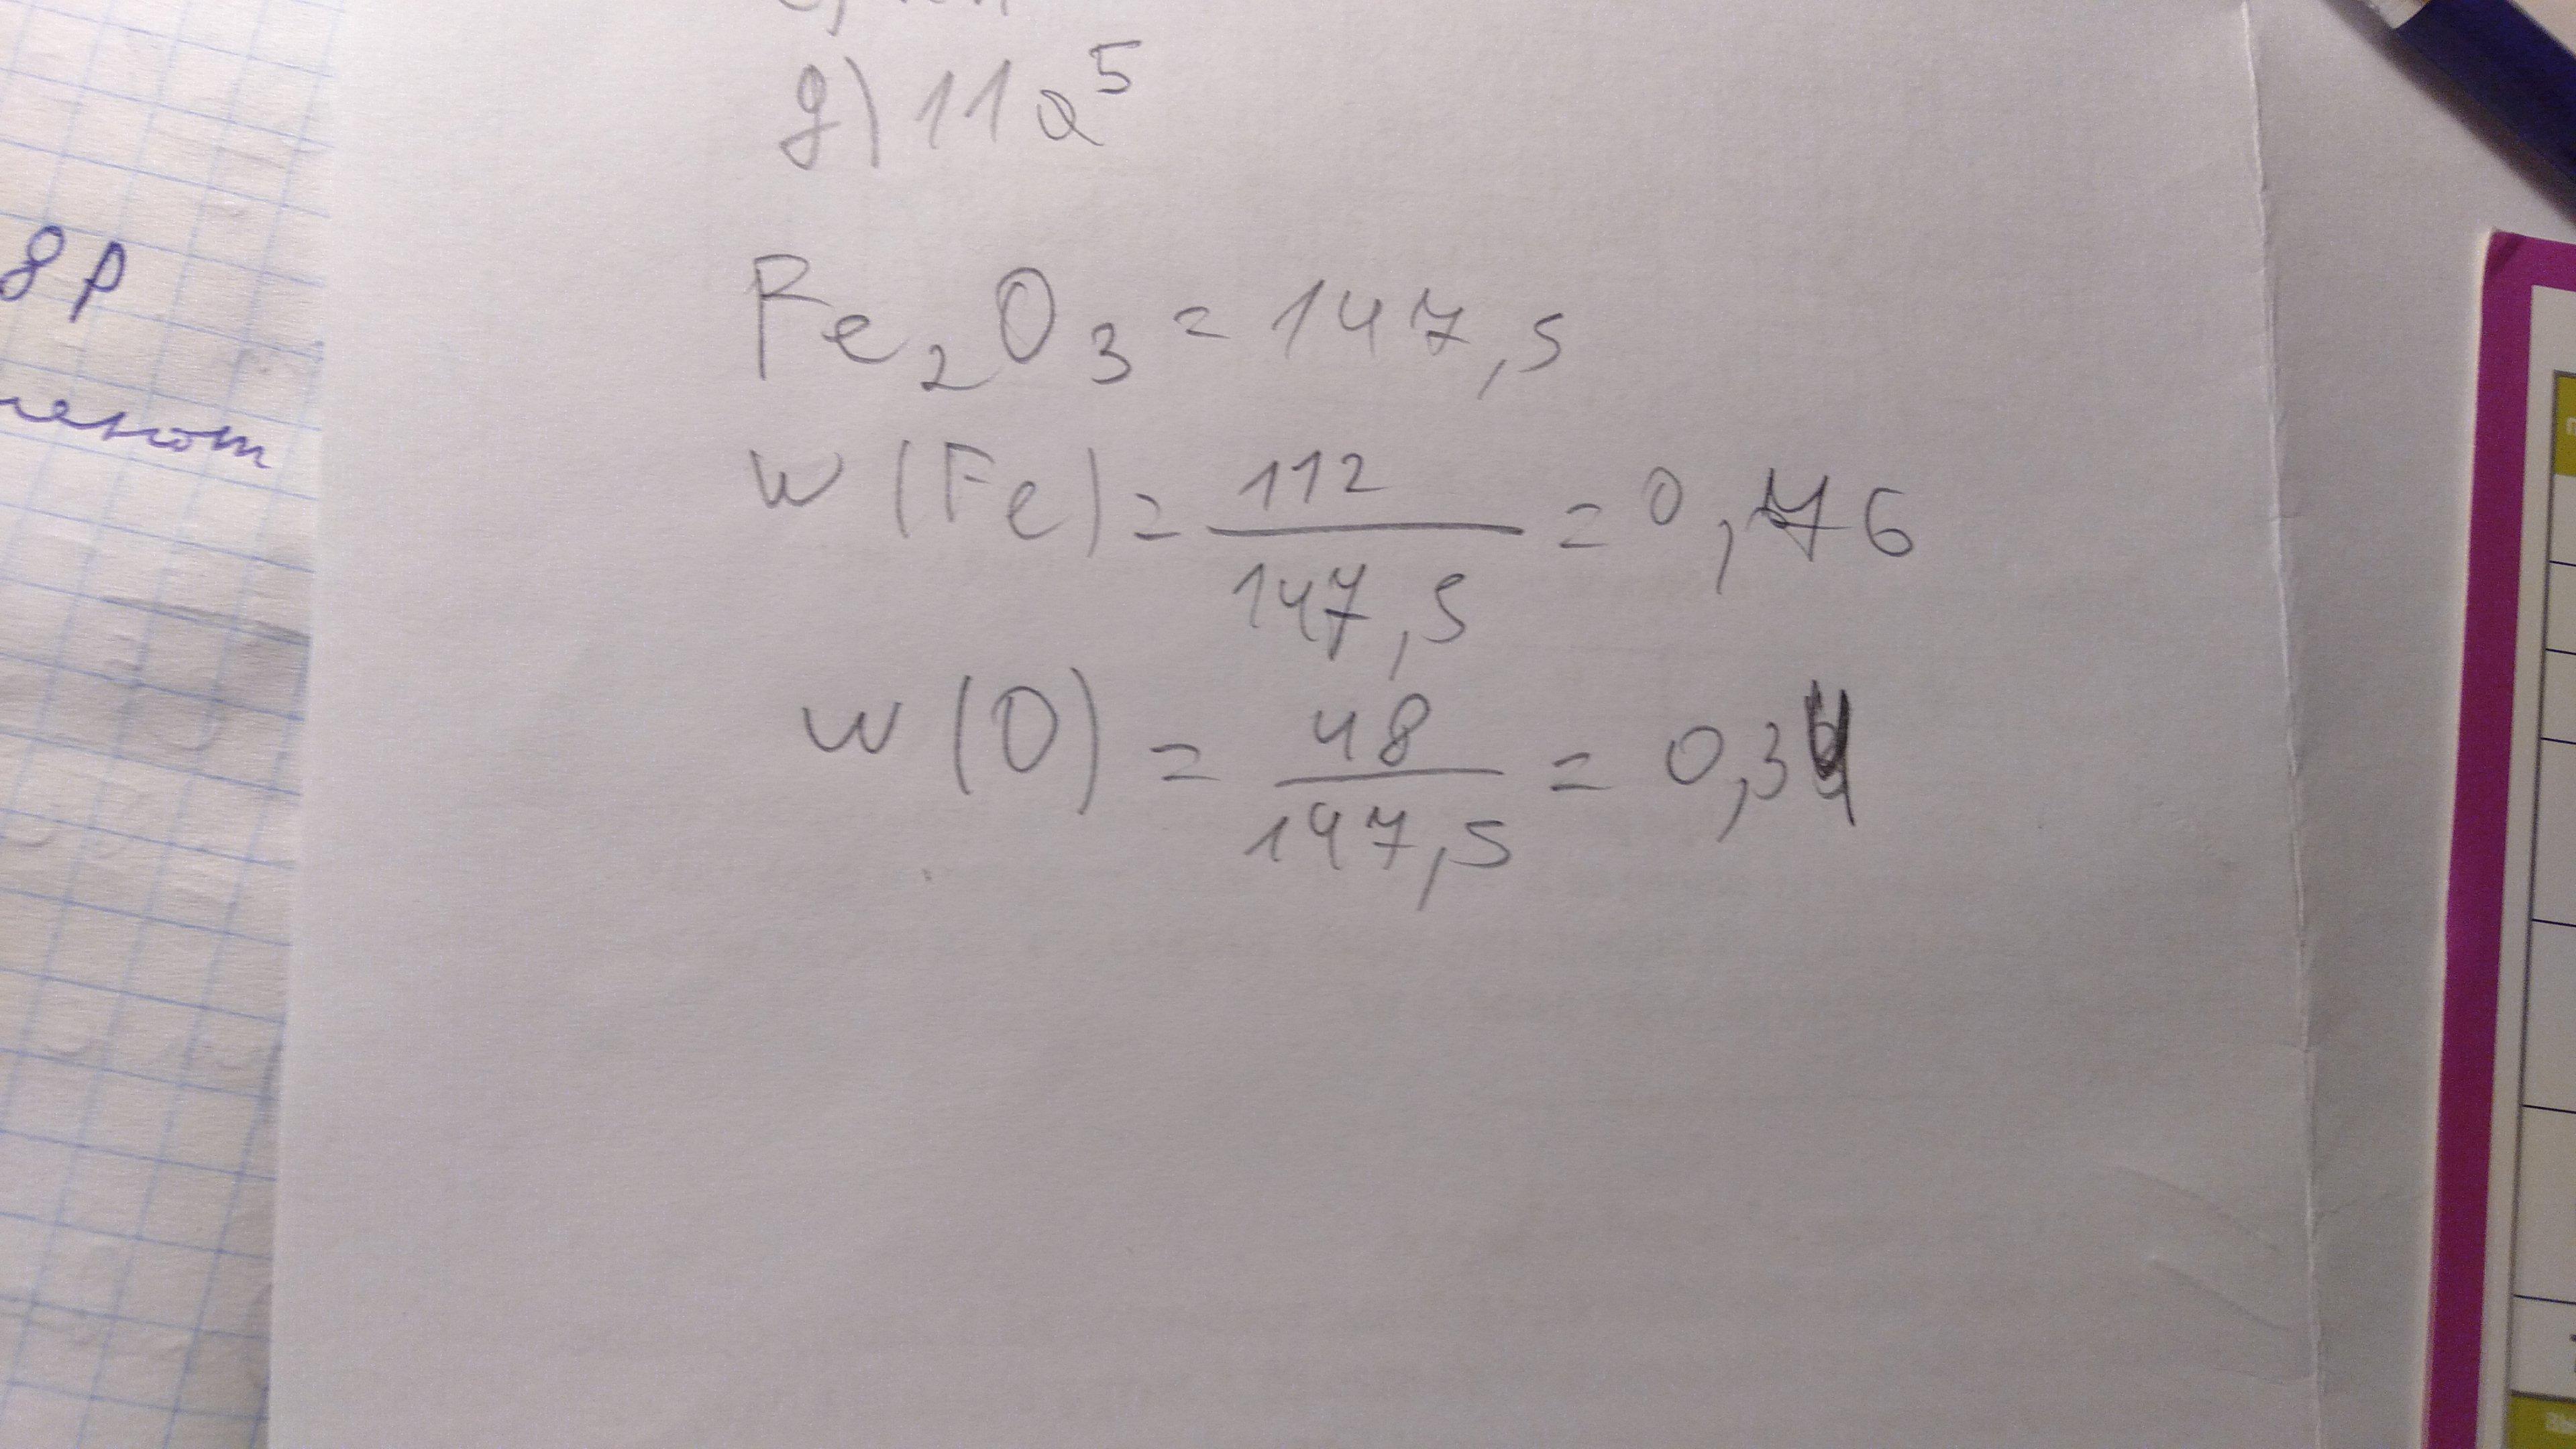 g) 11a⁵
8 р
Fe₂O₃ = 147,5
W (Fe) = 112/147,5 = 0,76
W (O) = 48/147,5 = 0,34